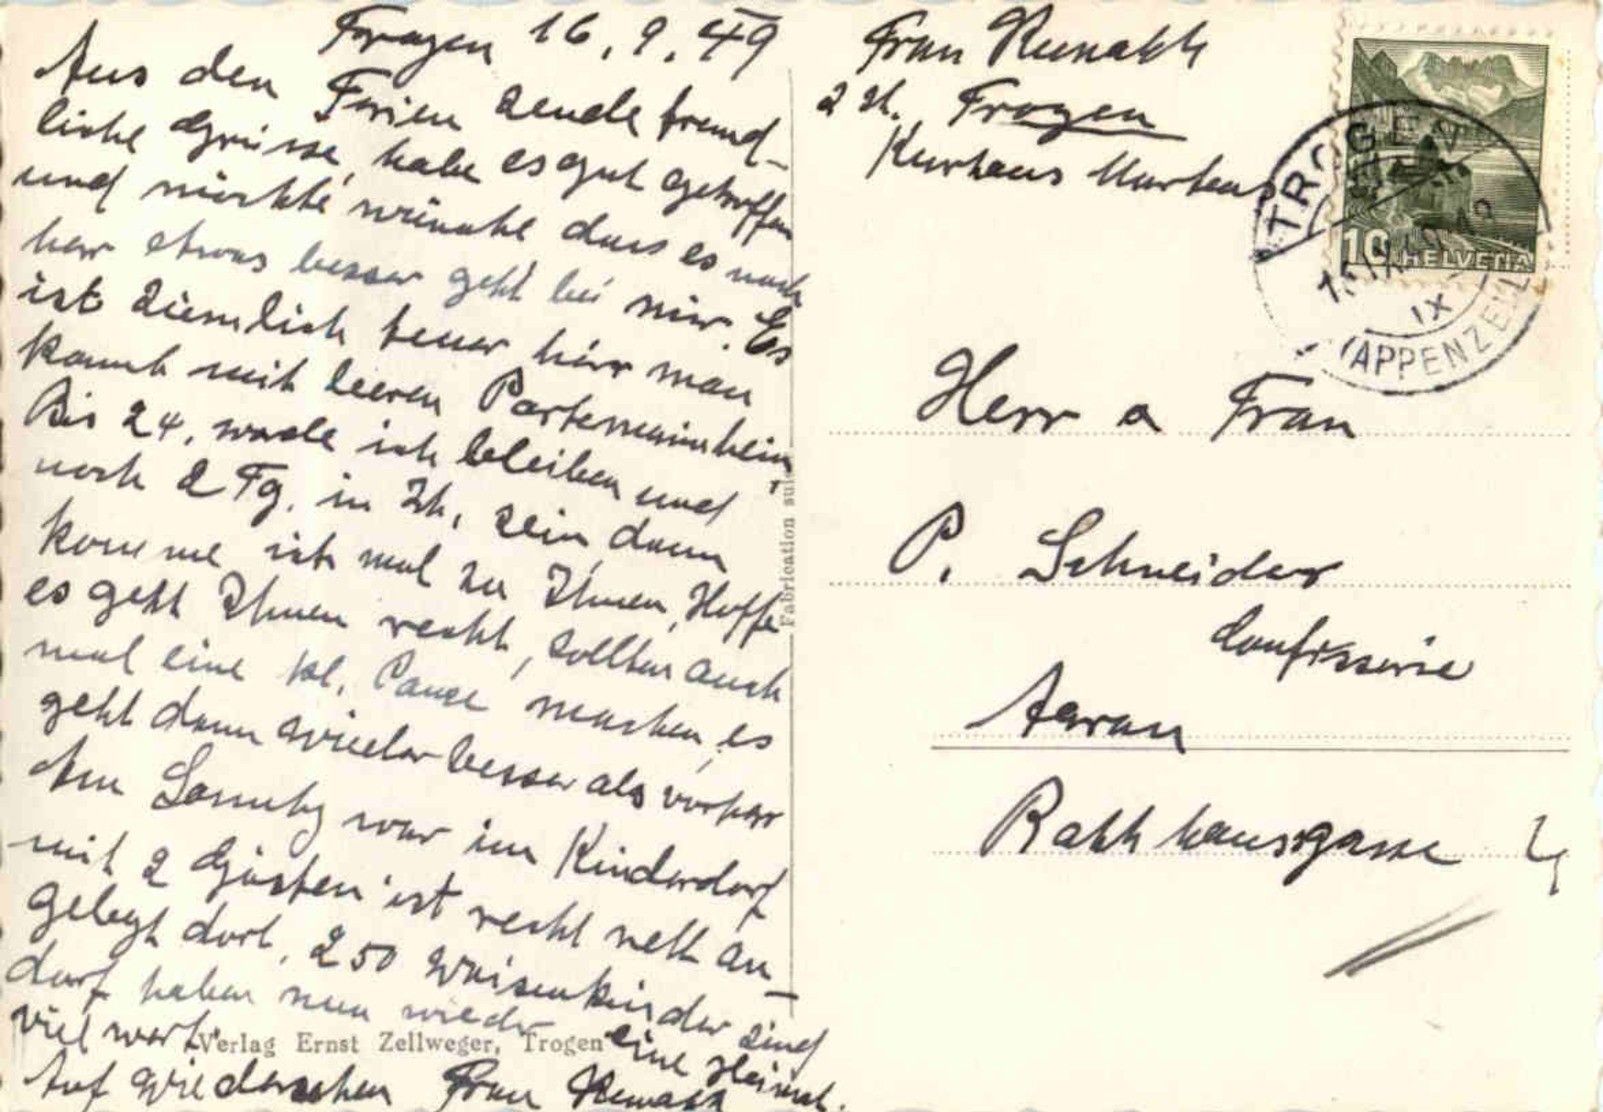 Trogen 16. 9. 49
Aus den Ferien sende freund-
liche Grüsse, habe es gut getroffen
und möchte wünsche dass es nach
her etwas besser geht bei mir. Es
ist ziemlich teuer hier man
kommt mit leeren Portemonnaie heim,
Bis 24. werde ich bleiben und
noch 2 Tg. in Zh. sein, dann
komme ich mal zu Ihnen, Hoffe
es geht Ihnen recht, sollten auch
mal eine kl. Pause machen, es
geht dann wieder besser als vorher
Am Samstg war im Kinderdorf
mit 2 Gästen ist recht nett an-
gelegt dort, 250 Waisenkinder sind
dort haben nun wieder eine Heimat.
viel wert.
Auf Wiedersehen Frau
Verlag Ernst Zellweger, Trogen
Fabrication sui
Frau
Trogen
Kurhaus
TROGEN
(APPENZELL
IX
10
HELVETIA
Herr & Frau
P. Schneider
Confisserie
Aarau
Rathhausgasse